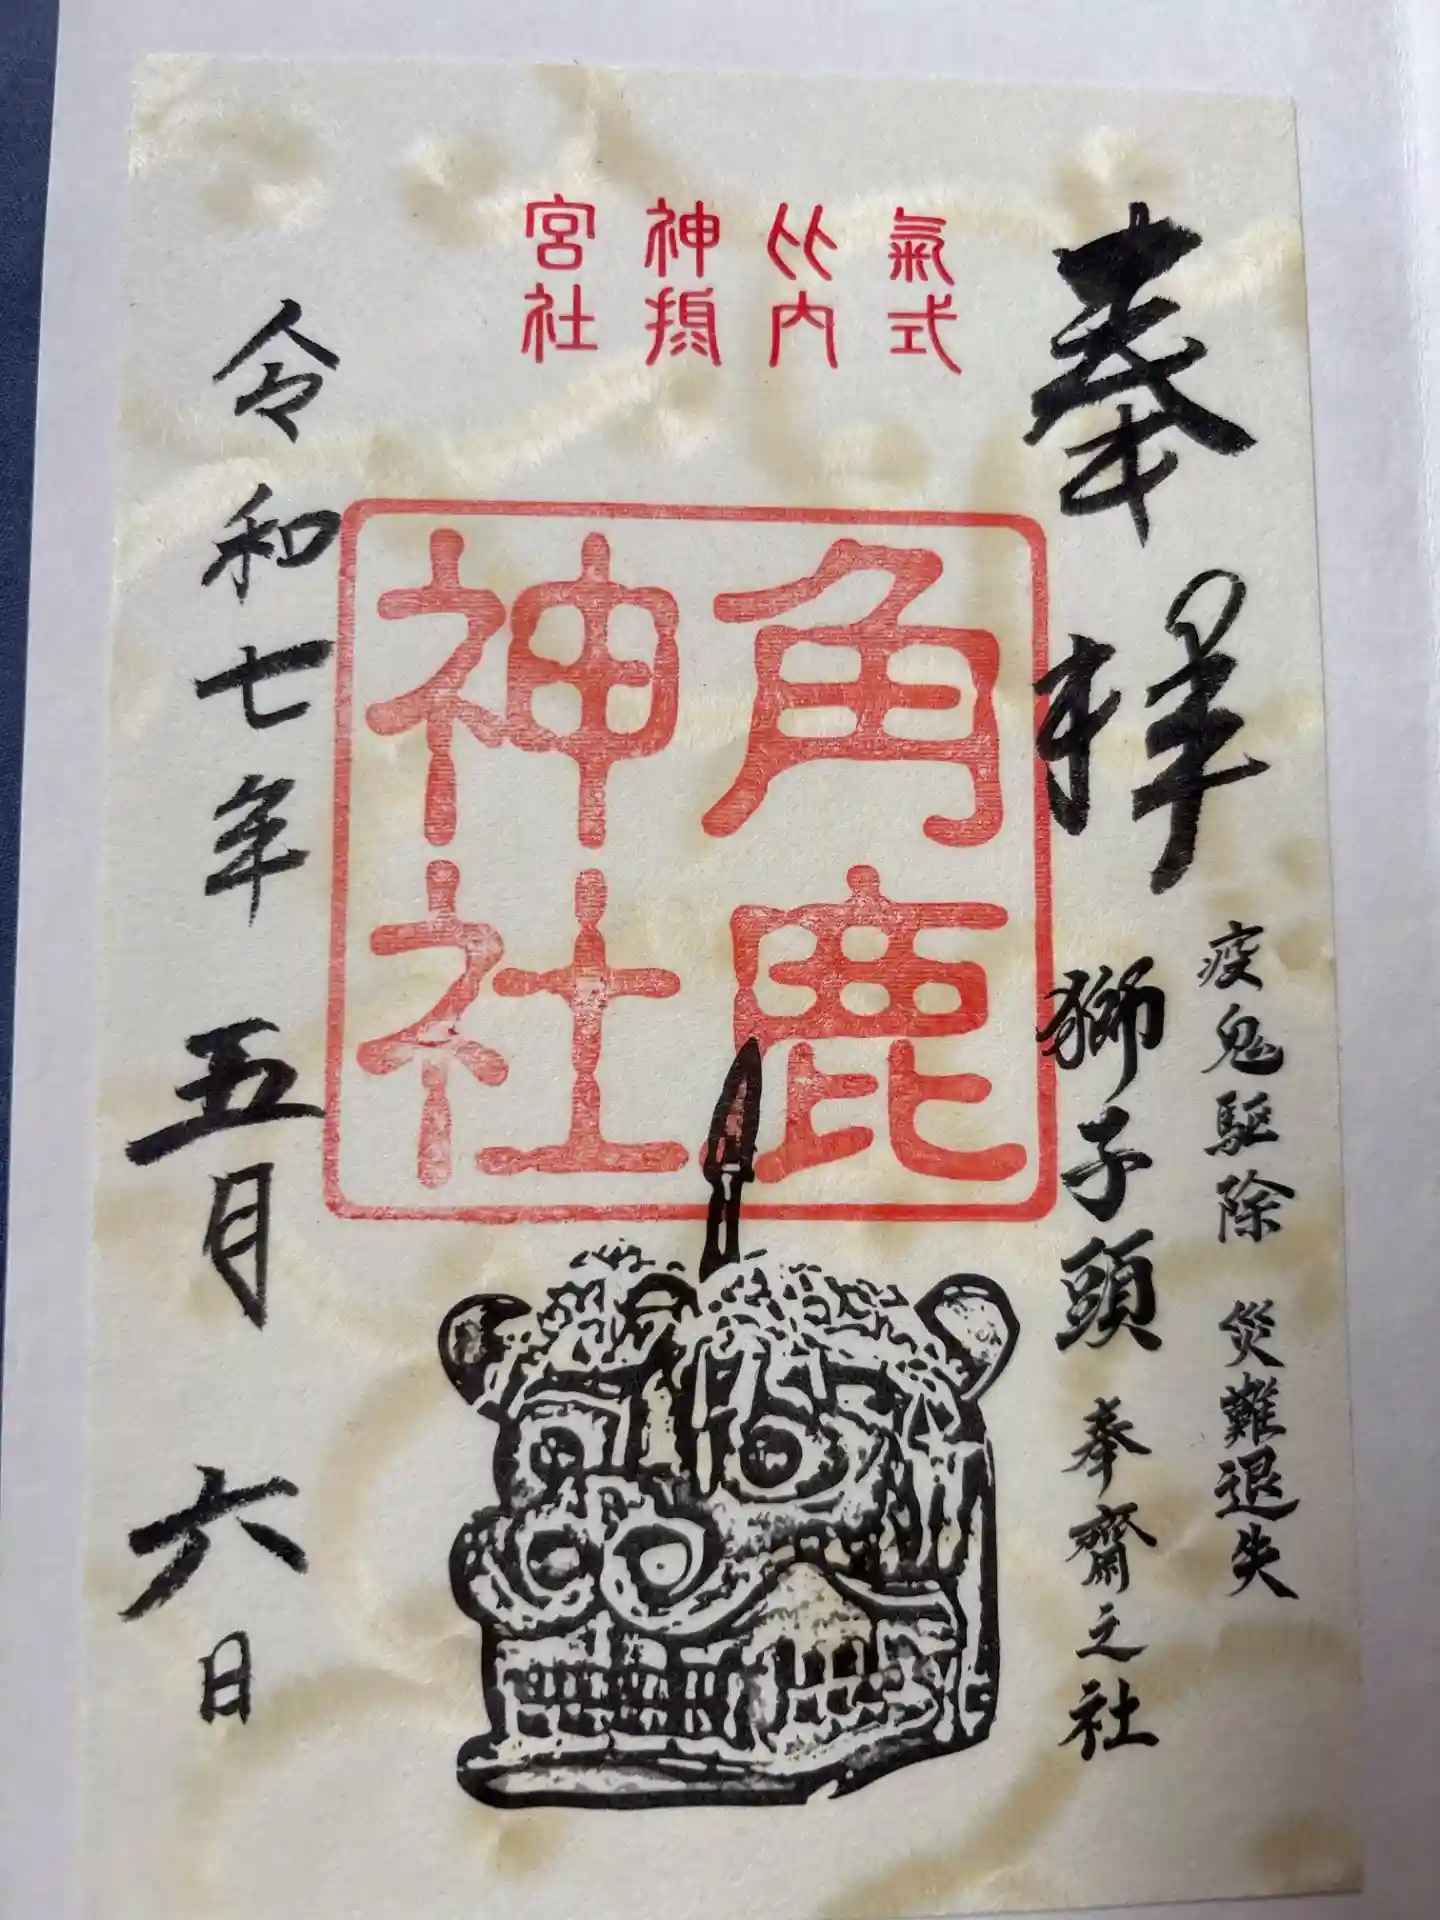 奉拝
疫鬼駆除 災難退失
獅子頭 奉齋之社
氣比神宮
式内摂社
角鹿
神社
令和七年 五月 六日